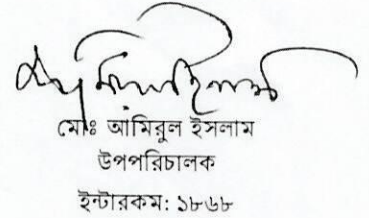 মোঃ আমিরুল ইসলাম
উপপরিচালক
ইন্টারকম: ১৮৬৮